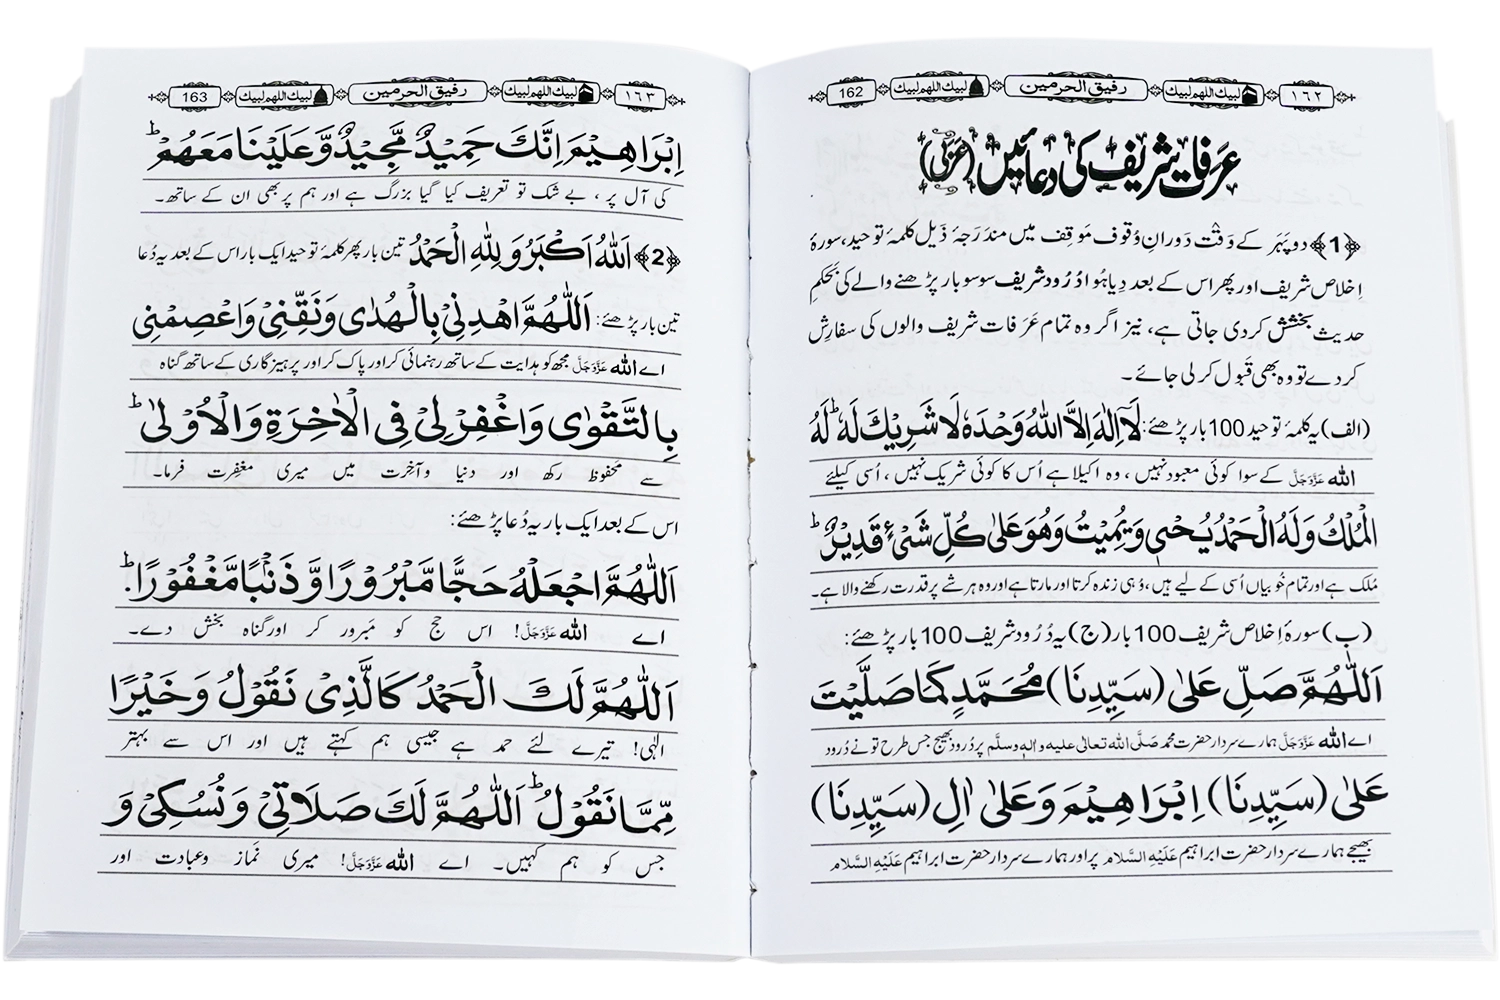 162 لبيك اللهم لبيك رفيق الحرمين لبيك اللهم لبيك ١٦٢
عَرَفات شریف کی دعائیں (عَرَبی)
﴿1﴾ دوپَہَر کے وَقْت دَورانِ وُقوف مَوقِف میں مندَرجَۂ ذَیل کلمۂ توحید، سورۂ
اِخلاص شریف اور پھر اس کے بعد دِیا ہُوا دُرُود شریف سو سو بار پڑھنے والے کی بَحکمِ
حدیث بخشش کر دی جاتی ہے، نیز اگر وہ تمام عَرَفات شریف والوں کی سفارِش
کر دے تو وہ بھی قَبول کر لی جائے۔
(الف) یہ کلمۂ توحید 100 بار پڑھئے: لَآ اِلٰهَ اِلَّا اللّٰهُ وَحْدَهٗ لَا شَرِيْكَ لَهٗ ؕ لَهُ
اللّٰہ عَزَّوَجَلَّ کے سوا کوئی معبود نہیں، وہ اکیلا ہے اُس کا کوئی شریک نہیں، اُسی کیلئے
الْمُلْكُ وَلَهُ الْحَمْدُ يُحْيٖ وَيُمِيْتُ وَهُوَ عَلٰى كُلِّ شَىْءٍ قَدِيْرٌ ؕ
مُلک ہے اور تمام خُوبیاں اُسی کے لیے ہیں، وُہی زندہ کرتا اور مارتا ہے اور وہ ہر شے پر قدرت رکھنے والا ہے۔
(ب) سورۂ اِخلاص شریف 100 بار (ج) یہ دُرُود شریف 100 بار پڑھئے:
اَللّٰهُمَّ صَلِّ عَلٰى (سَيِّدِنَا) مُحَمَّدٍ كَمَا صَلَّيْتَ
اے اللّٰہ عَزَّوَجَلَّ ہمارے سردار حضرت محمد صَلَّی اللہ تعالٰی علیہ و اٰلہٖ وسلَّم پر دُرُود بھیج جس طرح تو نے دُرود
عَلٰى (سَيِّدِنَا) اِبْرَاهِيْمَ وَعَلٰى اٰلِ (سَيِّدِنَا)
بھیجے ہمارے سردار حضرت ابراہیم عَلَیْہِ السَّلام پر اور ہمارے سردار حضرت ابراہیم عَلَیْہِ السَّلام
163 لبيك اللهم لبيك رفيق الحرمين لبيك اللهم لبيك ١٦٣
اِبْرَاهِيْمَ اِنَّكَ حَمِيْدٌ مَّجِيْدٌ وَّعَلَيْنَا مَعَهُمْ ؕ
کی آل پر، بے شک تو تعریف کیا گیا بزرگ ہے اور ہم پر بھی ان کے ساتھ۔
﴿2﴾ اَللّٰهُ اَكْبَرُ وَلِلّٰهِ الْحَمْدُ تین بار پھر کلمۂ توحید ایک بار اس کے بعد یہ دُعا
تین بار پڑھئے: اَللّٰهُمَّ اهْدِنِىْ بِالْهُدٰى وَنَقِّنِىْ وَاعْصِمْنِىْ
اے اللّٰہ عَزَّوَجَلَّ مجھ کو ہدایت کے ساتھ رہنمائی کر اور پاک کر اور پرہیزگاری کے ساتھ گناہ
بِالتَّقْوٰى وَاغْفِرْ لِىْ فِى الْاٰخِرَةِ وَالْاُوْلٰى ؕ
سے محفوظ رکھ اور دنیا و آخرت میں میری مغفِرت فرما۔
اس کے بعد ایک بار یہ دُعا پڑھئے:
اَللّٰهُمَّ اجْعَلْهُ حَجًّا مَّبْرُوْرًا وَّ ذَنْۢبًا مَّغْفُوْرًا ؕ
اے اللّٰہ عَزَّوَجَلَّ! اس حج کو مَبرور کر اور گناہ بخش دے۔
اَللّٰهُمَّ لَكَ الْحَمْدُ كَالَّذِىْ نَقُوْلُ وَخَيْرًا
الٰہی! تیرے لئے حمد ہے جیسی ہم کہتے ہیں اور اس سے بہتر
مِّمَّا نَقُوْلُ ؕ اَللّٰهُمَّ لَكَ صَلَاتِىْ وَنُسُكِىْ وَ
جس کو ہم کہیں۔ اے اللّٰہ عَزَّوَجَلَّ! میری نَماز و عبادت اور